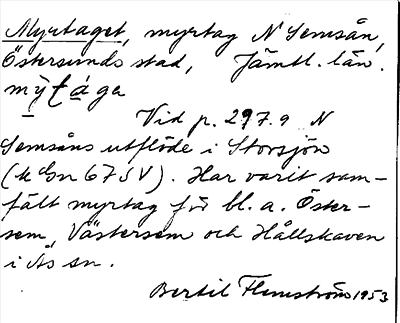 Myrtaget, myrtag N Semsån,
Östersunds stad, Jämtl. län.
Vid p. 297.9 N
Semsåns utflöde i Storsjön
(k dsn 67 S V). Har varit sam-
fält myrtag för bl. a. Öster-
sem, Västersem och Hållskaven
i Ås sn.
Bertil Flemström 1953